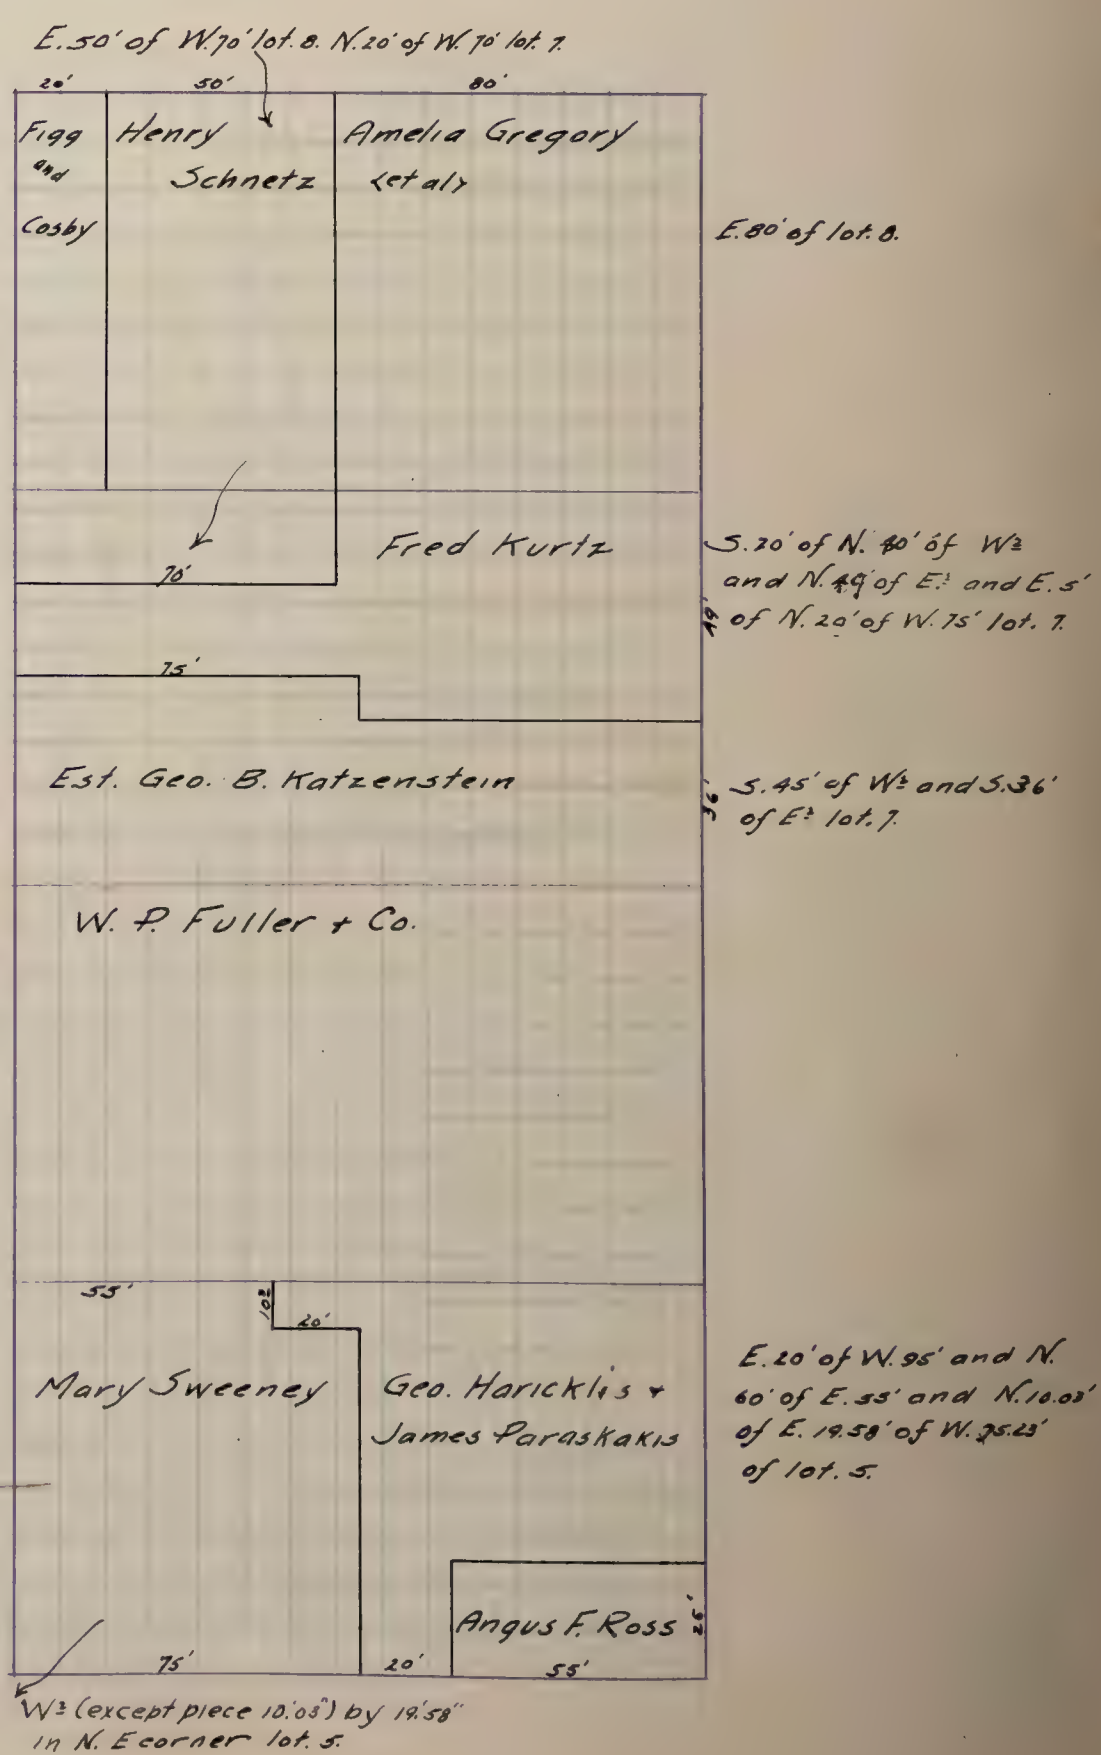 E. 50' of W. 70' lot. 8. N. 20' of W. 70' lot. 7.
20' 50' 80'
Figg and Cosby
Henry Schnetz
Amelia Gregory
<et al>
E. 80' of lot. 8.
70'
Fred Kurtz
S. 20' of N. 40' of W½
and N. 49' of E.½ and E. 5'
of N. 20' of W. 75' lot. 7.
49'
75'
Est. Geo. B. Katzenstein
36'
S. 45' of W½ and S. 36'
of E½ lot. 7.
W. P. Fuller + Co.
55'
20'
Mary Sweeney
Geo. Haricklis +
James Paraskakis
E. 20' of W. 95' and N.
60' of E. 55' and N. 10.03'
of E. 19.58' of W. 75.23'
of lot. 5.
Angus F. Ross
75' 20' 55'
W½ (except piece 10.'03") by 19.'58"
in N. E corner lot. 5.